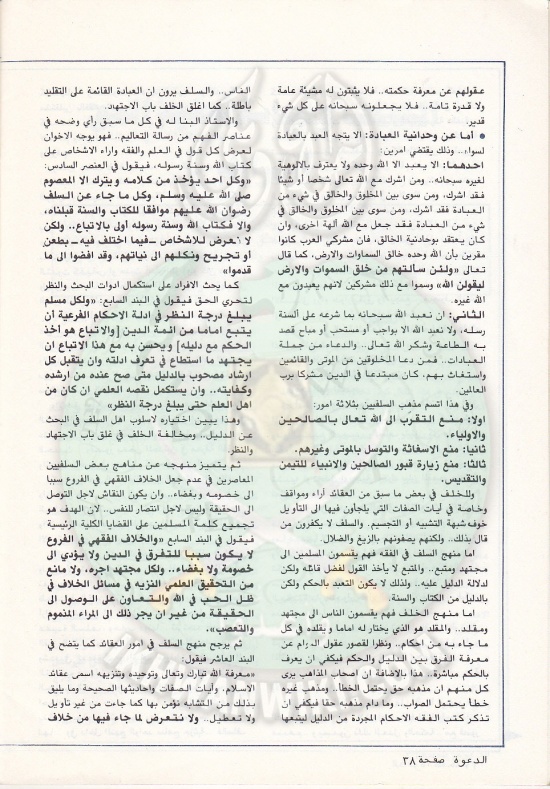 عقولهم عن معرفة حكمته.. فلا يثبتون له مشيئة عامة
ولا قدرة تامة.. فلا يجعلونه سبحانه على كل شيء
قدير.
● أما عن وحدانية العبادة: الا يتجه العبد بالعبادة
لسواه.. وذلك يقتضي امرين:
احدهما: الا يعبد الا الله وحده ولا يعترف بالالوهية
لغيره سبحانه.. ومن اشرك مع الله تعالى شخصا أو شيئا
فقد اشرك، ومن سوى بين المخلوق والخالق في شيء من
العبادة فقد اشرك، ومن سوى بين المخلوق والخالق في
شيء من العبادة فقد جعل مع الله آلهة اخرى، وان
كان يعتقد بوحدانية الخالق، فان مشركي العرب كانوا
مقرين بأن الله وحده خالق السماوات والارض، كما قال
تعالى «ولئن سألتهم من خلق السموات والارض
ليقولن الله» وسموا مع ذلك مشركين لانهم يعبدون مع
الله غيره.
الثاني: ان نعبد الله سبحانه بما شرعه على ألسنة
رسله، ولا نعبد الله الا بواجب أو مستحب أو مباح قصد
به الطاعة وشكر الله تعالى.. والدعاء من جملة
العبادات.. فمن دعا المخلوقين من الموتى والقائمين
واستغاث بهم، كان مبتدعا في الدين مشركا برب
العالمين.
وفي هذا اتسم مذهب السلفيين بثلاثة امور:
اولا: منع التقرب الى الله تعالى بالصالحين
والاولياء.
ثانيا: منع الاستغاثة والتوسل بالموتى وغيرهم.
ثالثا: منع زيارة قبور الصالحين والانبياء للتيمن
والتقديس.
وللخلف في بعض ما سبق من العقائد أراء ومواقف
وخاصة في آيات الصفات التي يلجأون فيها الى التأويل
خوف شبهة التشبيه أو التجسيم. والسلف لا يكفرون من
قال بذلك.. ولكنهم يصفونهم بالزيغ والضلال.
اما منهج السلف في الفقه فهم يقسمون المسلمين الى
مجتهد ومتبع.. والمتبع لا يأخذ القول لفضل قائله ولكن
لدلالة الدليل عليه.. ولذلك لا يكون التعبد بالحكم ولكن
بالدليل من الكتاب والسنة.
اما منهج الخلف فهم يقسمون الناس الى مجتهد
ومقلد.. والمقلد هو الذي يختار له اماما و يقلده في كل
ما جاء به من احكام.. ونظرا لقصور عقول العوام عن
معرفة الفرق بين الدليل والحكم فيكفي ان يعرف
بالحكم مباشرة.. هذا بالاضافة ان اصحاب المذاهب يرى
كل منهم ان مذهبه حق يحتمل الخطأ.. ومذهب غيره
خطأ يحتمل الصواب.. وما دام مذهبه حقا فيكفي ان
تذكر كتب الفقه الاحكام المجردة من الدليل ليتبعها
الناس.. والسلف يرون ان العبادة القائمة على التقليد
باطلة.. كما اغلق الخلف باب الاجتهاد.
والاستاذ البنا له في كل ما سبق رأي وضحه في
عناصر الفهم من رسالة التعاليم.. فهو يوجه الاخوان
لعرض كل قول في العلم والفقه واراء الاشخاص على
كتاب الله وسنة رسوله، فيقول في العنصر السادس:
«وكل احد يؤخذ من كلامه و يترك الا المعصوم
صلى الله عليه وسلم، وكل ما جاء عن السلف
رضوان الله عليهم موافقا للكتاب والسنة قبلناه،
والا فكتاب الله وسنة رسوله أولى بالاتباع.. ولكن
لا نعرض للاشخاص ــ فيما اختلف فيه ــ بطعن
او تجريح ونكلهم الى نياتهم، وقد افضوا الى ما
قدموا»
كما يحث الافراد على استكمال ادوات البحث والنظر
لتحري الحق فيقول في البند السابع: «ولكل مسلم
يبلغ درجة النظر في ادلة الاحكام الفرعية أن
يتبع اماما من ائمة الدين [والاتباع هو أخذ
الحكم مع دليله] و يحسن به مع هذا الاتباع ان
يجتهد ما استطاع في تعرف ادلته وان يتقبل كل
ارشاد مصحوب بالدليل متى صح عنده من ارشده
وكفايته.. وان يستكمل نقصه العلمي ان كان من
اهل العلم حتى يبلغ درجة النظر»
وهذا يبين اختياره لاسلوب اهل السلف في البحث
عن الدليل.. ومخالفة الخلف في غلق باب الاجتهاد
والنظر.
ثم يتميز منهجه عن مناهج بعض السلفيين
المعاصرين في عدم جعل الخلاف الفقهي في الفروع سببا
الى خصومة و بغضاء.. وان يكون النقاش لاجل التوصل
الى الحقيقة وليس لاجل انتصار للنفس.. لان الهدف هو
تجميع كلمة المسلمين على القضايا الكلية الرئيسية
فيقول في البند السابع «والخلاف الفقهي في الفروع
لا يكون سببا للتفرق في الدين ولا يؤدي الى
خصومة ولا بغضاء.. ولكل مجتهد اجره، ولا مانع
من التحقيق العلمي النزيه في مسائل الخلاف في
ظل الحب في الله والتعاون على الوصول الى
الحقيقة من غير ان يجر ذلك الى المراء المذموم
والتعصب».
ثم يرجح منهج السلف في امور العقائد كما يتضح في
البند العاشر فيقول:
«معرفة الله تبارك وتعالى وتوحيده وتنزيهه اسمى عقائد
الاسلام، وآيات الصفات واحاديثها الصحيحة وما يليق
بذلك من التشابه نؤمن بها كما جاءت من غير تأويل
ولا تعطيل.. ولا نتعرض لما جاء فيها من خلاف
الدعوة صفحة ٣٨